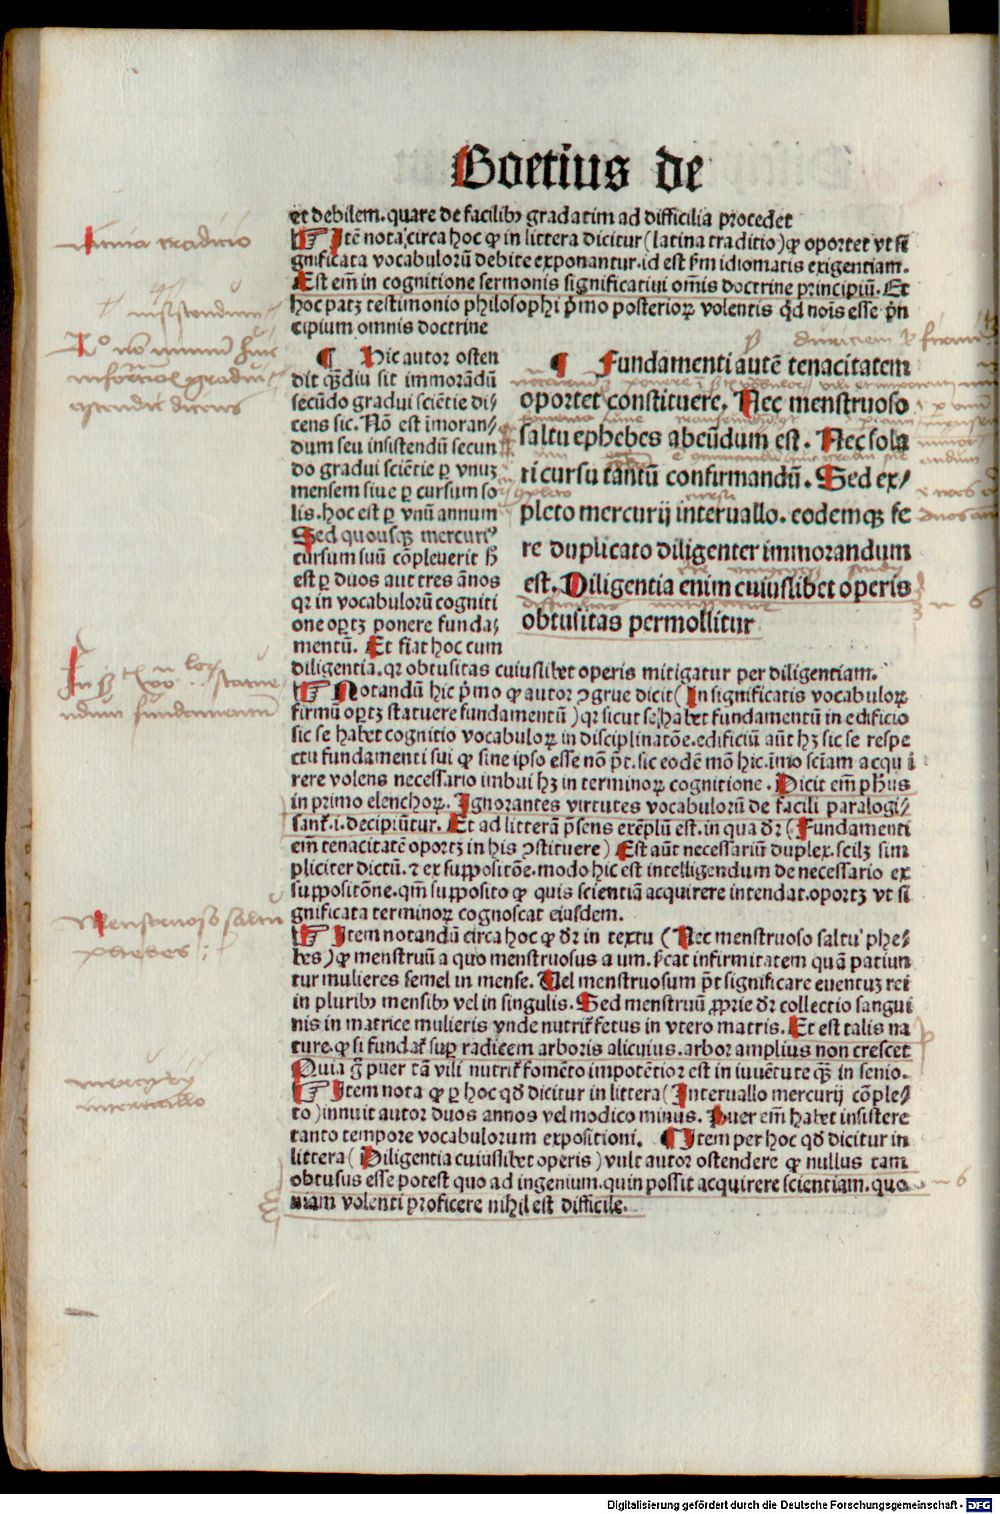 Boetius de
et debilem. quare de facilibꝰ gradatim ad difficilia procedet
☞ Itē nota circa hoc ꝙ in littera dicitur (latina traditio) ꝙ oportet vt si
gnificata vocabulorū debite exponantur. id est ẜm idiomatis exigentiam.
Est em̄ in cognitione sermonis significatiui om̄is doctrine principiū. Et
hoc patꝫ testimonio philosophi p̄mo posterioꝝ volentis qd̄ nois esse p̄n
cipium omnis doctrine
¶ Hic autor osten
dit qūdiu sit immorādū
secūdo gradui sciētie di⸗
cens sic. Nō est īmoran/
dum seu insistendū secun
do gradui sciētie ꝑ vnuꝫ
mensem siue ꝑ cursum so
lis. hoc est ꝑ vnū annum
Sed quousqꝫ mercuri⁹
cursum suū cōpleuerit h̄
est ꝑ duos aut tres ānos
qꝛ in vocabulorū cogniti
one oꝑtꝫ ponere funda⸗
mentū. Et fiat hoc cum
diligentia. qꝛ obtusitas cuiuslibet operis mitigatur per diligentiam.
¶ Fundamenti autē tenacitatem
oportet constituere. Nec menstruoso
saltu ephebes abeūdum est. Nec sola
ri cursu tantū confirmandū. Sed ex/
pleto mercurij interuallo. eodemqꝫ fe
re duplicato diligenter immorandum
est. Diligentia enim cuiuslibet operis
obtusitas permollitur
☞ Notandū hic p̄mo ꝙ autor ↄgrue dicit (In significatis vocabuloꝝ
firmū oꝑtꝫ statuere fundamentū) qꝛ sicut se habet fundamentū in edificio
sic se habet cognitio vocabuloꝝ in disciplinatōe. edificiū aūt hꝫ sic se respe
ctu fundamenti sui ꝙ sine ipso esse nō p̄t. sic eodē mō hic. īmo sciam acqu i
rere volens necessario imbui hꝫ in terminoꝝ cognitione. Dicit em̄ ph̄us
in primo elenchoꝝ. Ignorantes virtutes vocabulorū de facili paralogi⸗
sant̄. i. decipiūtur. Et ad litterā p̄sens exēplū est. in qua dr̄ (Fundamenti
em̄ tenacitatē oportꝫ in his ↄstituere) Est aūt necessariū duplex. scilꝫ sim
pliciter dictū. ⁊ ex suppositōe. modo hic est intelligendum de necessario ex
suppositōne. qm̄ supposito ꝙ quis scientiā acquirere intendat. oportꝫ vt si
gnificata terminoꝝ cognoscat eiusdem.
☞ Item notandū circa hoc ꝙ dr̄ in textu (Nec menstruoso saltu phe⸗
bes) ꝙ menstruū a quo menstruosus a um. p̄cat infirmitatem quā patiun
tur mulieres semel in mense. Uel menstruosum p̄t significare euentuꝫ rei
in pluribꝰ mensibꝰ vel in singulis. Sed menstruū ꝓprie dr̄ collectio sangui
nis in matrice mulieris vnde nutrit̄ fetus in vtero matris. Et est talis na
ture. ꝙ si fundat̄ suꝑ radicem arboris alicuius. arbor amplius non crescet
Quia g̊ puer tā vili nutrit̄ fomēto impotētior est in iuuētute qꝫ in senio.
☞ Item nota ꝙ ꝑ hoc qd̄ dicitur in littera (Interuallo mercurij cōple⸗
to) innuit autor duos annos vel modico minus. Puer em̄ habet insistere
tanto tempore vocabulorum expositioni. ¶ Item per hoc qd̄ dicitur in
littera (Diligentia cuiuslibet operis) vult autor ostendere ꝙ nullus tam
obtusus esse potest quo ad ingenium. quin possit acquirere scientiam. quo
niam volenti proficere nihil est difficile.
latina tradicio
Menstruoso saltu
phebes
mercurij
interuallo
Digitalisierung gefördert durch die Deutsche Forschungsgemeinschaft - DFG